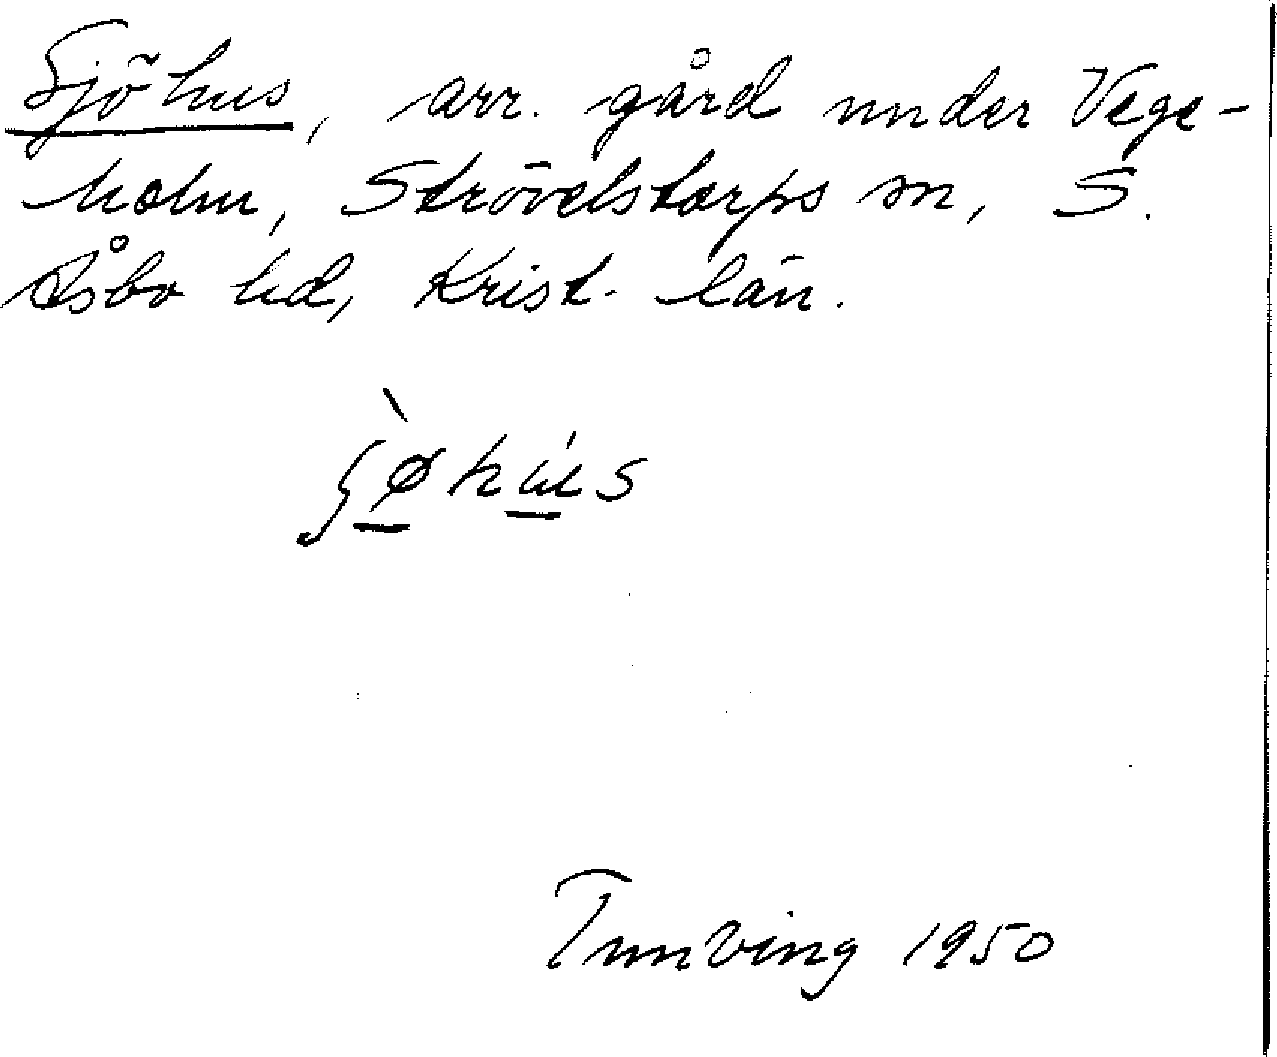 Sjöhus, arr. gård under Vege-
holm, Strövelstorps sn, S.
Åsbo hd, Krist. län.
ʃø̠̀hú̠s
Tunving 1950